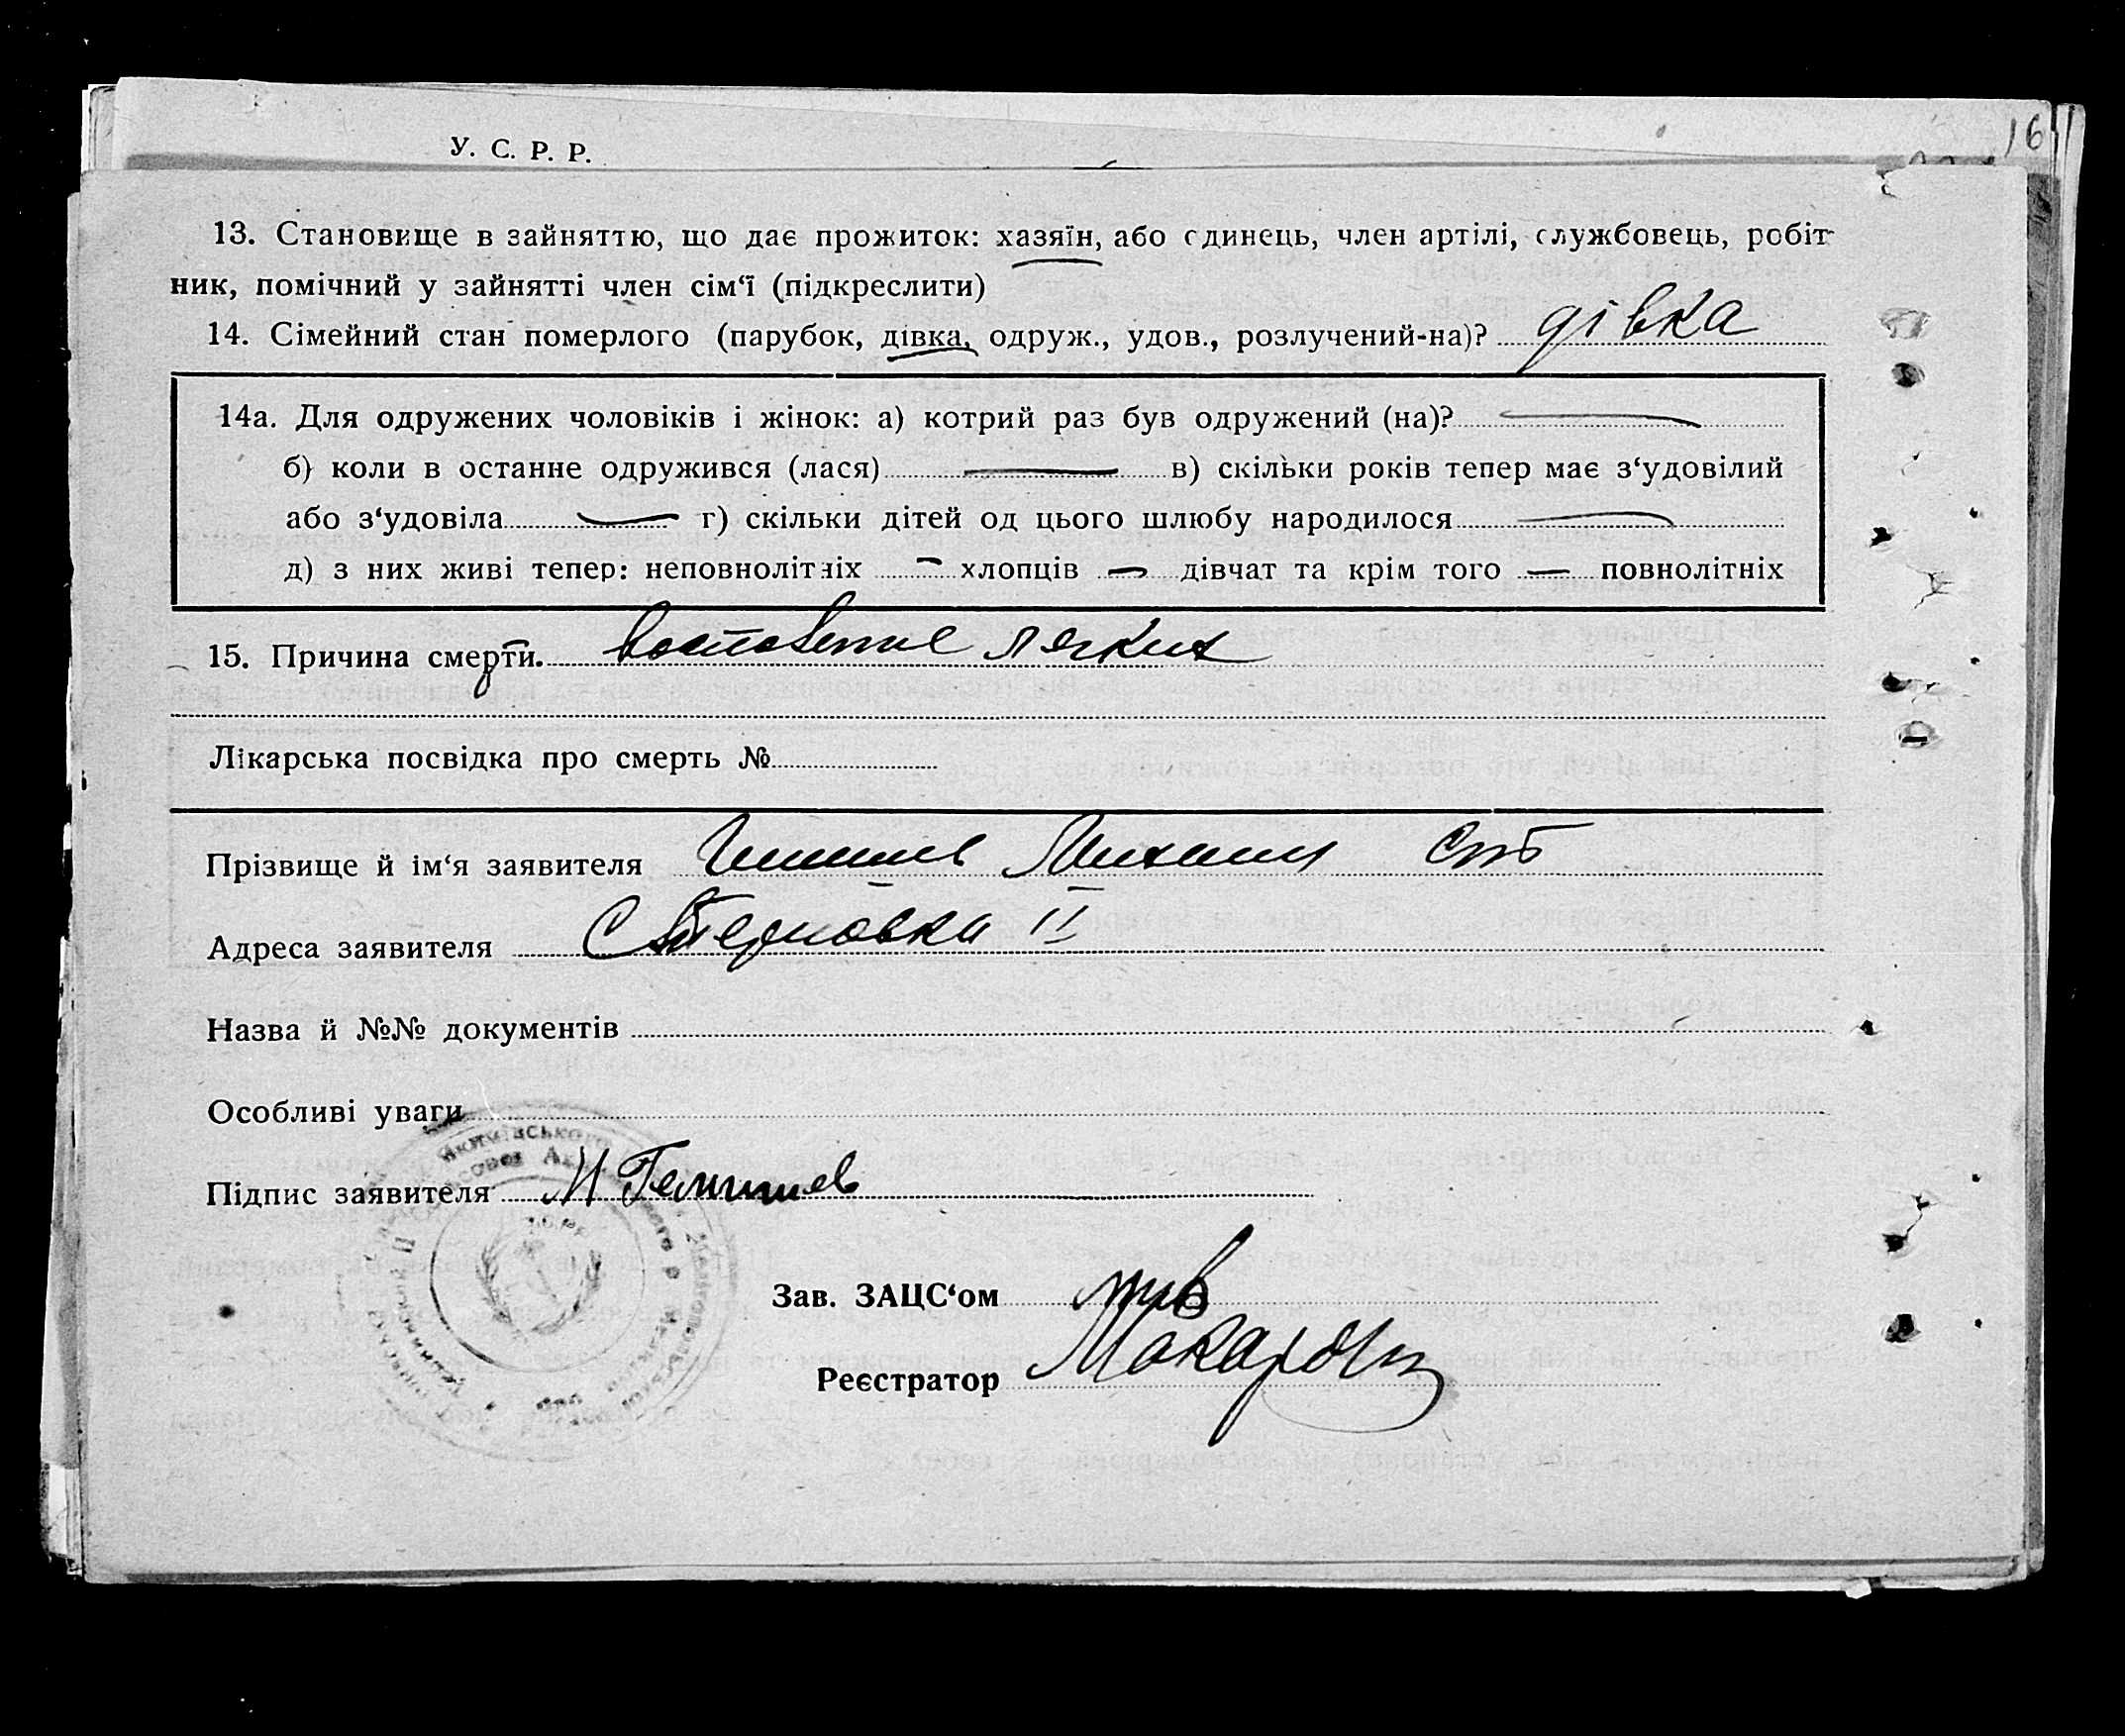 16
У. С. Р. Р.
13. Становище в зайняттю, що дає прожиток: хазяїн, або єдинець, член артілі, службовець, робіт-
ник, помічний у зайнятті член сім‘ї (підкреслити)
14. Сімейний стан померлого (парубок, дівка, одруж., удов., розлучений-на)? дівка
14а. Для одружених чоловіків і жінок: а) котрий раз був одружений (на)? —
б) коли в останне одружився (лася) — в) скільки років тепер має з‘удовілий
або з‘удовіла — г) скільки дітей од цього шлюбу народилося —
д) з них живі тепер: неповнолітніх — хлопців — дівчат та крім того — повнолітніх
15. Причина смерти. легких
Лікарська посвідка про смерть №
Прізвище й ім‘я заявителя Михаил
Адреса заявителя С Терновка II
Назва й №№ документів
Особливі уваги
Підпис заявителя М
Зав. ЗАЦС‘ом
Реєстратор